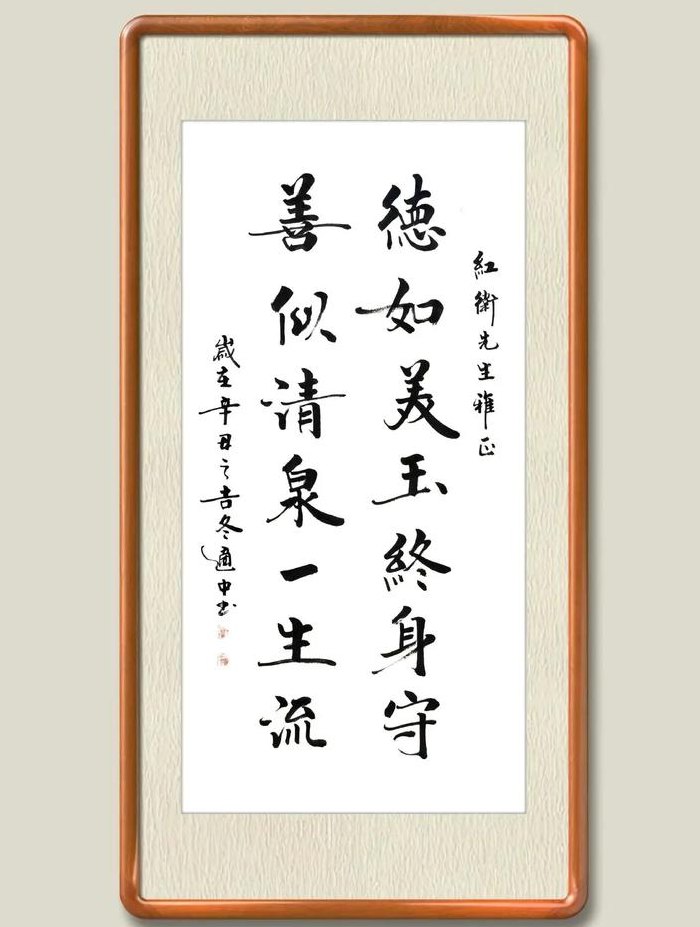 紅衛先生雅正
德如美玉終身守
善似清泉一生流
歲在辛丑之吉冬適中书